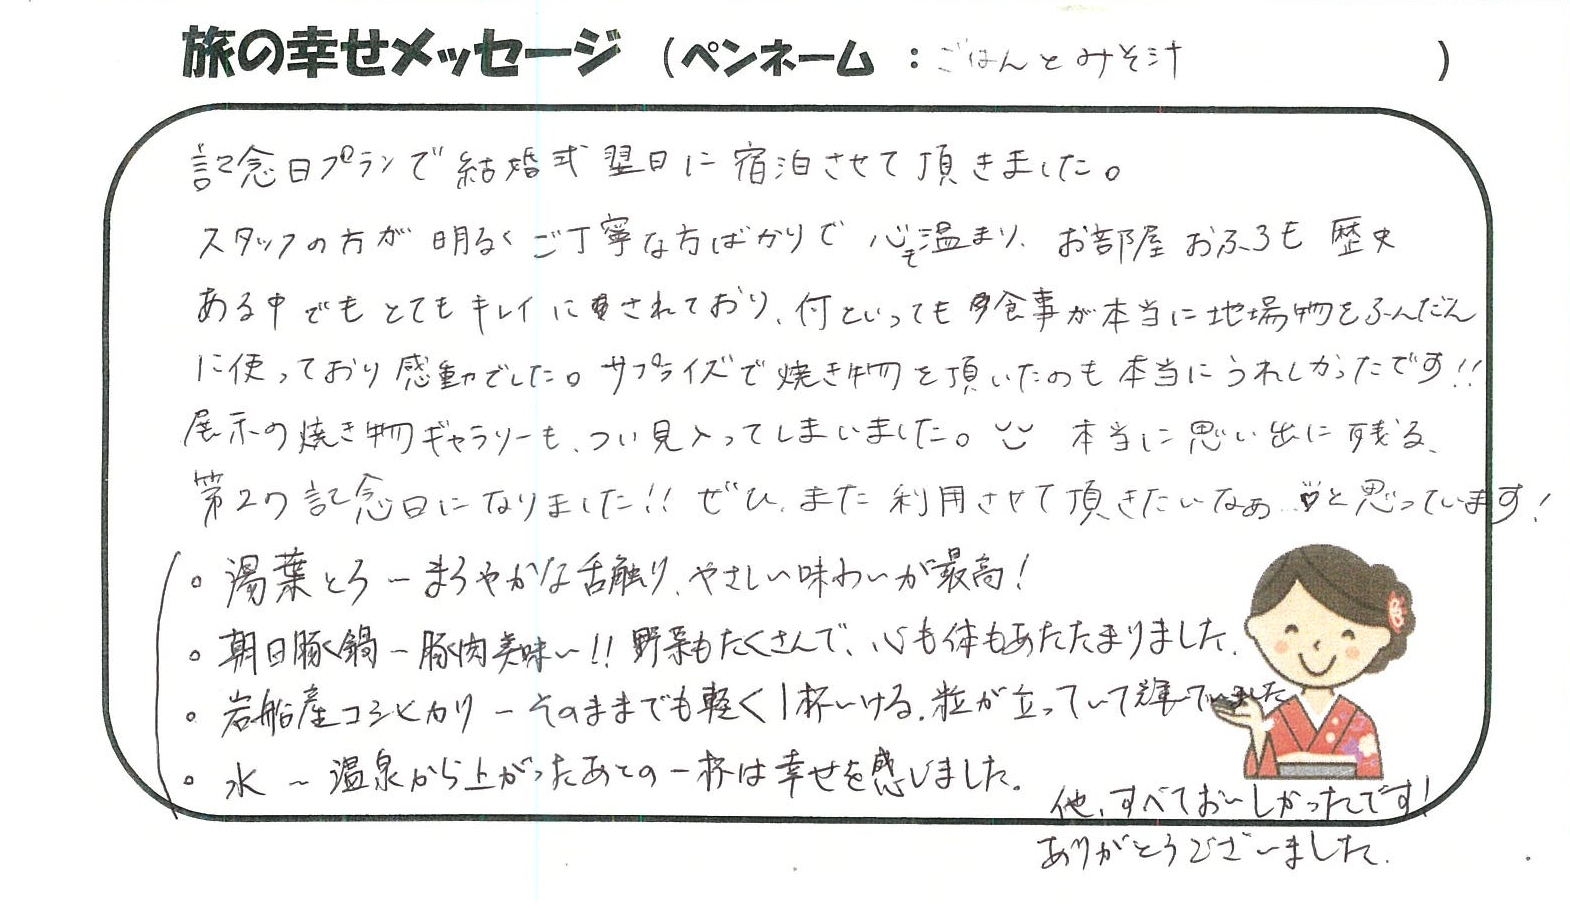 旅の幸せメッセージ (ペンネーム : ごはんとみそ汁 )
記念日プランで結婚式翌日に宿泊させて頂きました。
スタッフの方が明るくご丁寧な方ばかりで心も温まり、お部屋おふろも歴史
ある中でもとてもキレイにされており、何といっても食事が本当に地場物をふんだん
に使っており感動でした。サプライズで焼き物を頂いたのも本当にうれしかったです!!
展示の焼き物ギャラリーも、つい見入ってしまいました。本当に思い出に残る、
第2の記念日になりました!! ぜひ、また利用させて頂きたいなぁ…♡と思っています!
。湯葉とろ〜まろやかな舌触り、やさしい味わいが最高!
。朝日豚鍋〜豚肉美味〜!! 野菜もたくさんで、心も体もあたたまりました。
。岩船産コシヒカリ〜そのままでも軽く1杯いける。粒が立っていて輝いてました
。水〜温泉から上がったあとの一杯は幸せを感じました。
他、すべておいしかったです!
ありがとうございました。